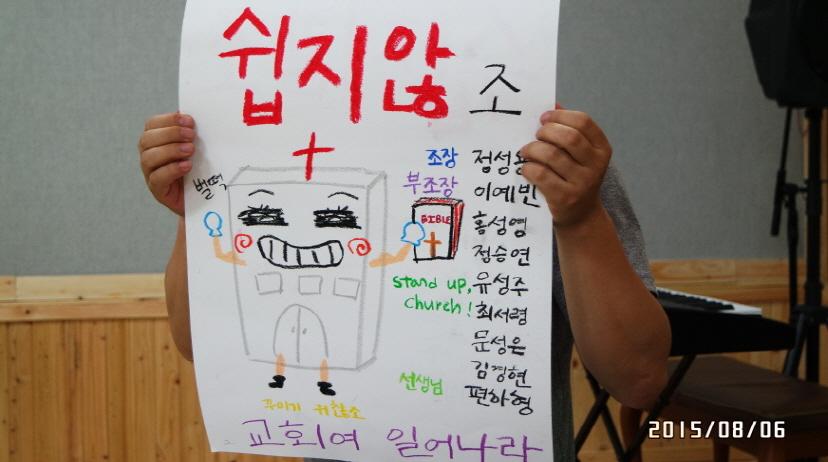 쉽지않 조
조장 정성용
부조장 이예빈
홍성영
정승연
유성주
최서령
문성은
김경현
선생님 편하형
벌떡
BIBLE
stand up,
church!
꾸미기 귀찮소
교회여 일어나라
2015/08/06